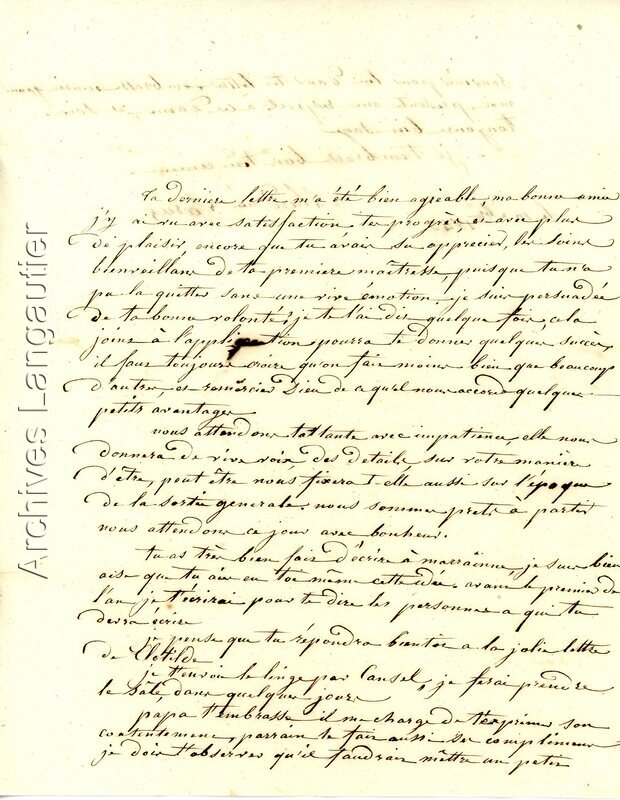 ta derniere lettre m'a été bien agréable, ma bonne amie
j'y ai vu avec satisfaction, tes progrès et avec plus
de plaisir, encore que tu avais su apprécier, les soins
bienveillans de ta premiere maîtresse, puisque tu n'a
pu la quitter sans une vive émotion. je suis persuadée
de ta bonne volonté, je te l'ai dis quelque fois, cela
joins à l'application pourra te donner quelques succès,
il faut toujours croire qu'on fait moins bien que beaucoup
d'autres, et remercier Dieu de a qu'el nous accorde quelques
petits avantages
nous attendons ta tante avec impatience, elle nous
donnera de vive voix des details sur votre maniere
d'être, peut être nous fixera t'elle aussi sur l'époque
de la sortie generale. nous sommes prets à partir
nous attendons ce jour avec bonheur.
tu as très bien fait d'écrire à marrainne, je suis bien
aise que tu aie eu toi même cette idée. avant le premier de
l'an je t'écrirai pour te dire les personnes a qui tu
devra écrire
je pense que tu répondra bientot a la jolie lettre
de Clotilde
je t'envoie le linge par Cansel, je ferai prendre
le sale, dans quelques jours
papa t'embrasse il me charge de t'exprimer son
contentement, parrain te fait aussi ses complimens
je dois t'observer qu'il faudrait mettre un petit
Archives Langautier